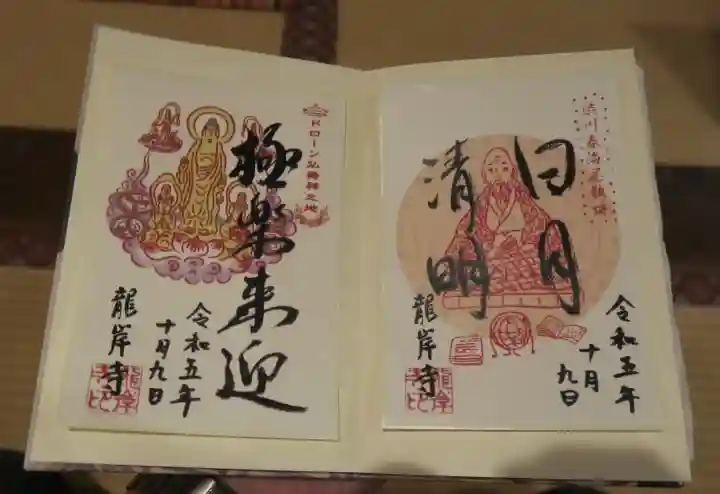 日月
清明
令和五年
十月
九日
龍岸寺
ドローン仏発祥之地
極楽来迎
令和五年
十月九日
龍岸寺